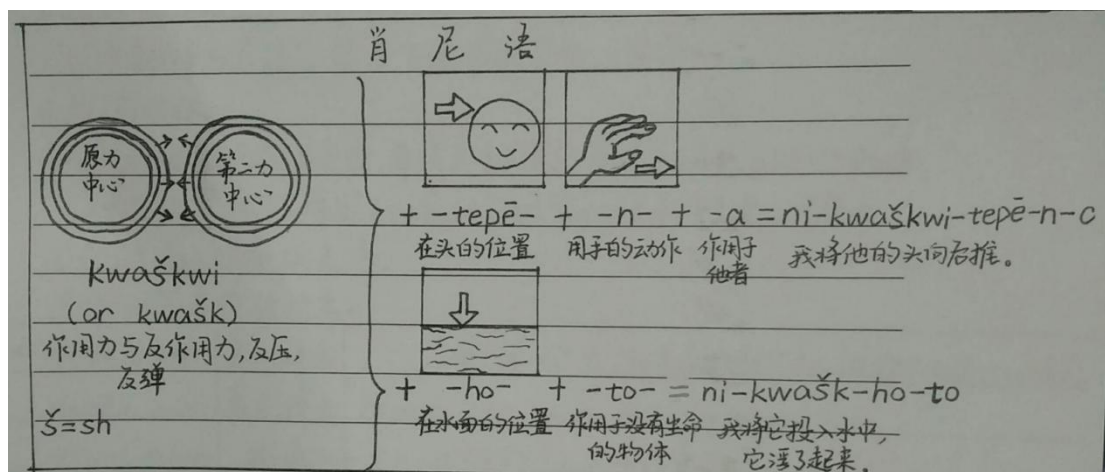 肖尼语
原力
中心
第二力
中心
kwaškwi
(or kwašk)
作用力与反作用力,反压,
反弹
š=sh
+ -tepē- + -n- + -a = ni-kwaškwi-tepē-n-c
在头的位置 用手的动作 作用于
他者 我将他的头向后推。
+ -ho- + -to- = ni-kwašk-ho-to
在水面的位置 作用于没有生命
的物体 我将它投入水中,
它浮了起来。